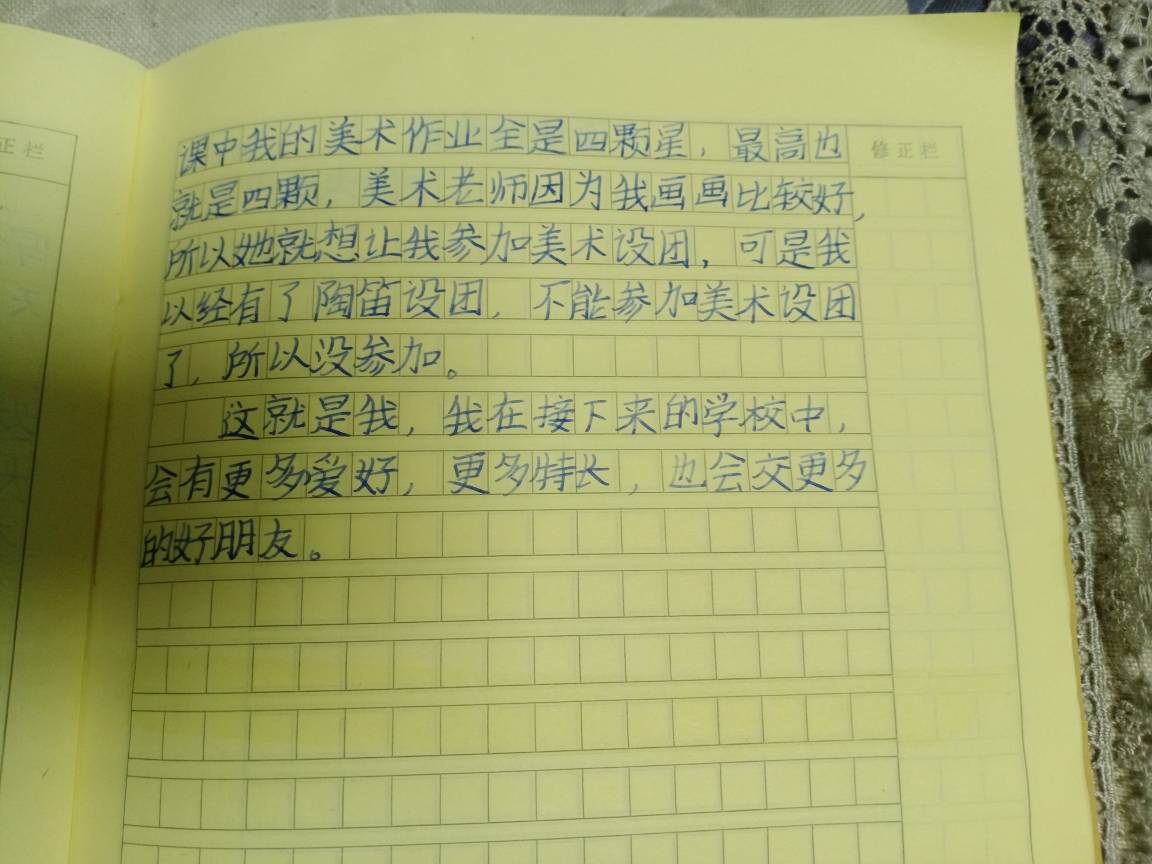 正栏
修正栏
课中我的美术作业全是四颗星，最高也
就是四颗，美术老师因为我画画比较好，
所以她就想让我参加美术设团，可是我
以经有了陶笛设团，不能参加美术设团
了，所以没参加。
这就是我，我在接下来的学校中，
会有更多爱好，更多特长，也会交更多
的好朋友。